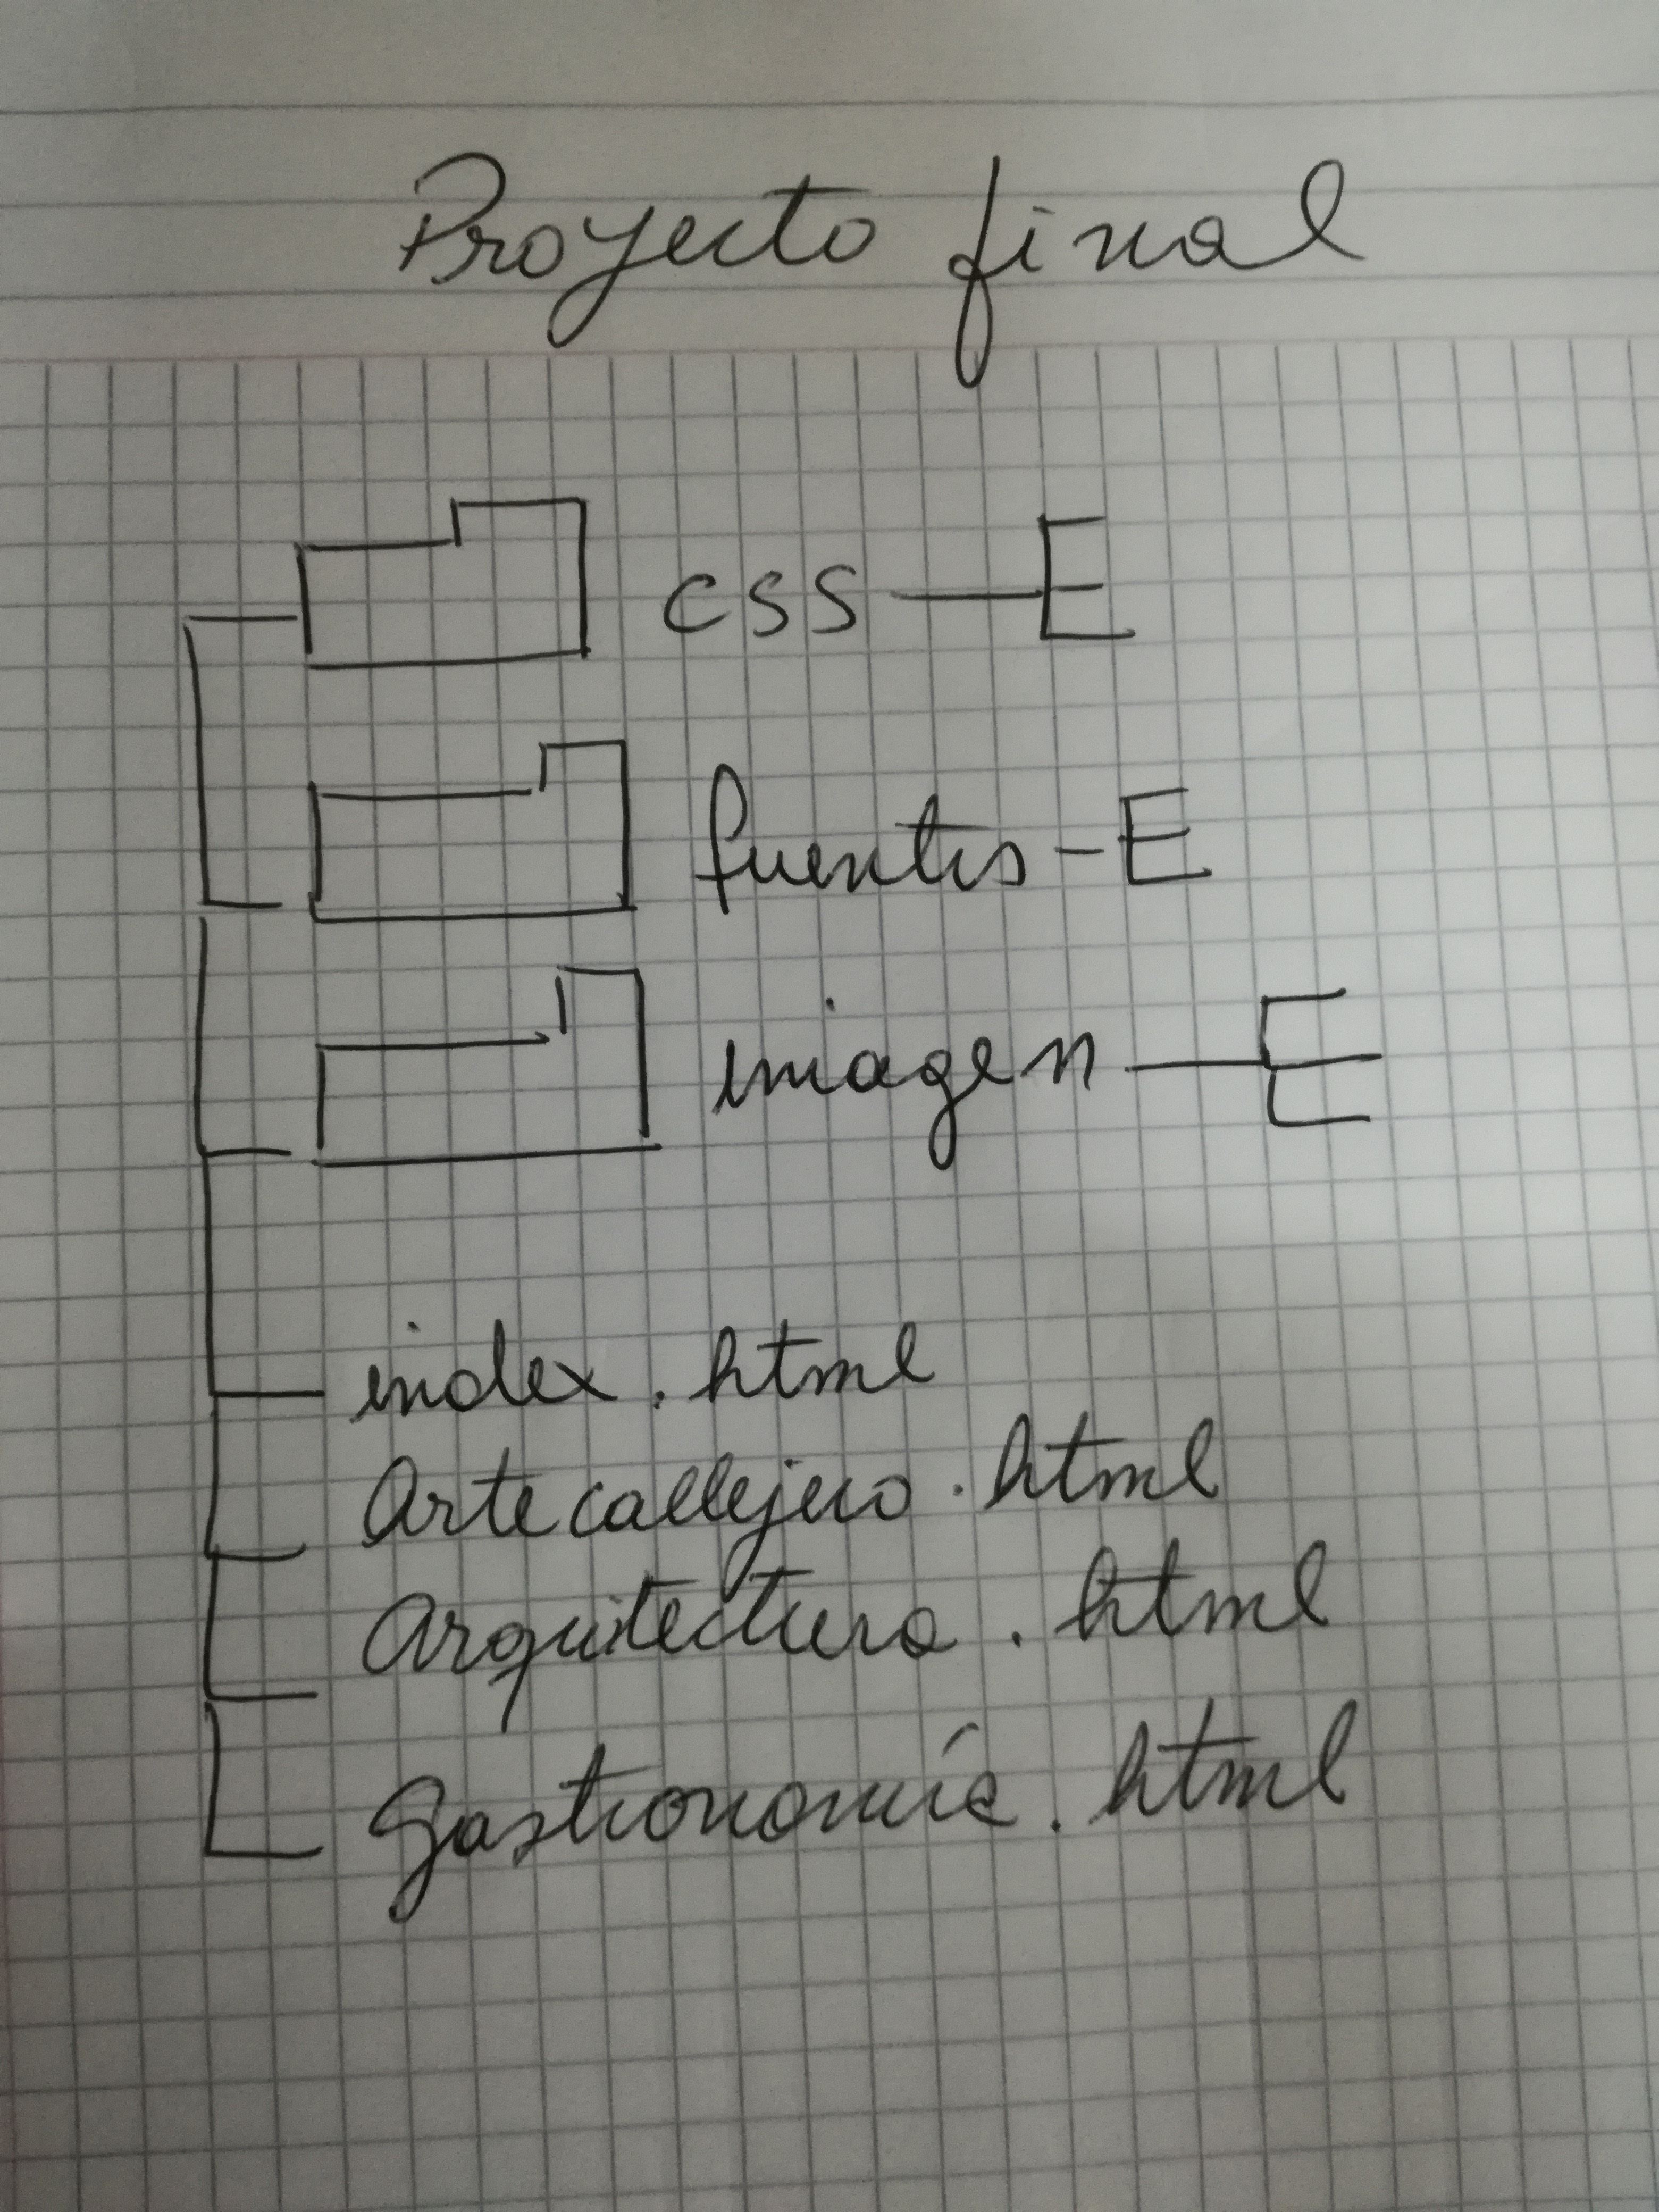 Proyecto final
css
fuentes
imagen
index.html
Artecallejero.html
Arquitectura.html
gastronomía.html